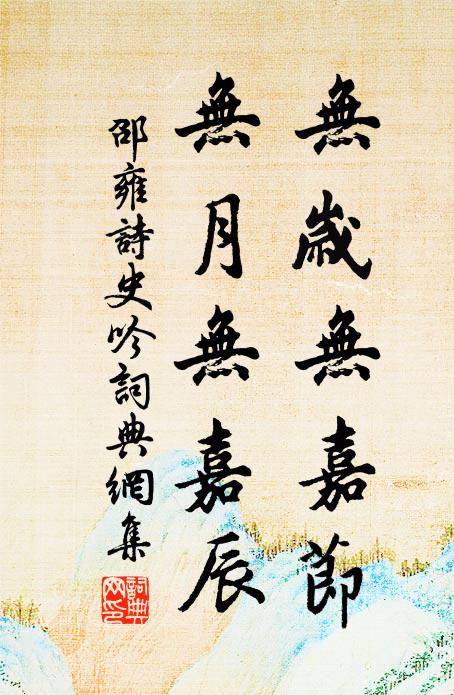 無歲無嘉節
無月無嘉辰
邵雍詩史吟詞典網集
詞典
网印